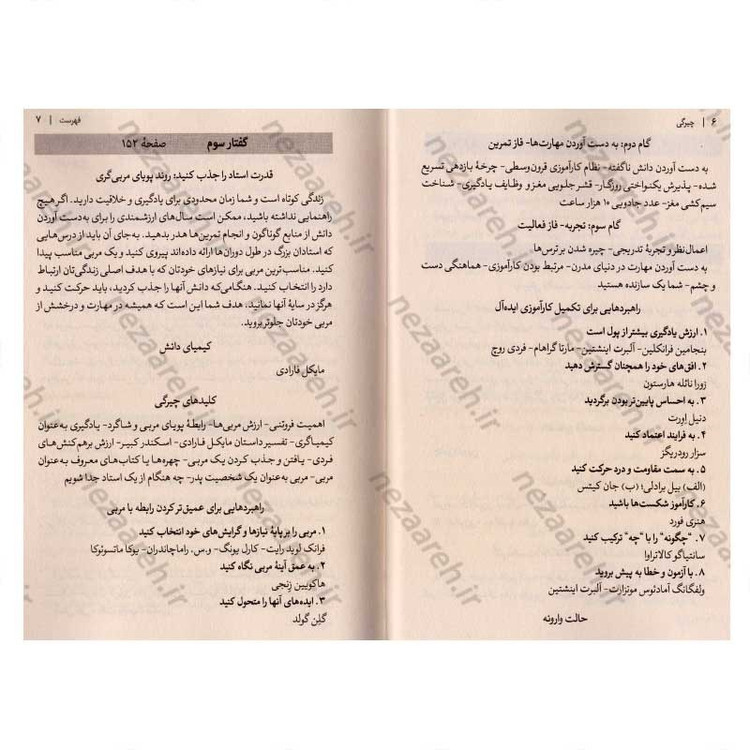 ۶ | چیرگی
گام دوم: به دست آوردن مهارت‌ها- فاز تمرین
به دست آوردن دانش ناگفته- نظام کارآموزی قرون‌وسطی- چرخهٔ بازدهی تسریع
شده- پذیرش یکنواختی روزگار- قشر جلویی مغز و وظایف یادگیری- شناخت
سیم‌کشی مغز- عدد جادویی ۱۰ هزار ساعت
گام سوم: تجربه- فاز فعالیت
اعمال‌نظر و تجربهٔ تدریجی- چیره شدن بر ترس‌ها
به دست آوردن مهارت در دنیای مدرن- مرتبط بودن کارآموزی- هماهنگی دست
و چشم- شما یک سازنده هستید
راهبردهایی برای تکمیل کارآموزی ایده‌آل
۱. ارزش یادگیری بیشتر از پول است
بنجامین فرانکلین- آلبرت اینشتین- مارتا گراهام- فردی روچ
۲. افق‌های خود را همچنان گسترش دهید
زورا نائله هارستون
۳. به احساس پایین‌تر بودن برگردید
دنیل اِورت
۴. به فرایند اعتماد کنید
سزار رودریگز
۵. به سمت مقاومت و درد حرکت کنید
(الف) بیل برادلی؛ (ب) جان کیتس
۶. کارآموز شکست‌ها باشید
هنری فورد
۷. "چگونه" را با "چه" ترکیب کنید
سانتیاگو کالاتراوا
۸. با آزمون و خطا به پیش بروید
ولفگانگ آمادئوس موتزارت- آلبرت اینشتین
حالت وارونه
فهرست | ۷
گفتار سوم صفحهٔ ۱۵۲
قدرت استاد را جذب کنید: روند پویای مربی‌گری
زندگی کوتاه است و شما زمان محدودی برای یادگیری و خلاقیت دارید. اگر هیچ
راهنمایی نداشته باشید، ممکن است سال‌های ارزشمندی را برای به‌دست آوردن
دانش از منابع گوناگون و انجام تمرین‌ها هدر بدهید. به‌جای آن باید از درس‌هایی
که استادان بزرگ در طول دوران‌ها ارائه داده‌اند پیروی کنید و یک مربی مناسب پیدا
کنید. مناسب‌ترین مربی برای نیازهای خودتان که با هدف اصلی زندگی‌تان ارتباط
دارد را انتخاب کنید. هنگامی‌که دانش آنها را جذب کردید، باید حرکت کنید و
هرگز در سایهٔ آنها نمانید. هدف شما این است که همیشه در مهارت و درخشش از
مربی خودتان جلوتر بروید.
کیمیای دانش
مایکل فارادی
کلیدهای چیرگی
اهمیت فروتنی- ارزش مربی‌ها- رابطهٔ پویای مربی و شاگرد- یادگیری به‌عنوان
کیمیاگری- تفسیر داستان مایکل فارادی- اسکندر کبیر- ارزش برهم‌کنش‌های
فردی- یافتن و جذب کردن یک مربی- چهره‌ها یا کتاب‌های معروف به‌عنوان
مربی- مربی به‌عنوان یک شخصیت پدر- چه هنگام از یک استاد جدا شویم
راهبردهایی برای عمیق‌تر کردن رابطه با مربی
۱. مربی را بر پایهٔ نیازها و گرایش‌های خود انتخاب کنید
فرانک لوید رایت- کارل یونگ- و.س. راماچاندران- یوکا ماتسوئوکا
۲. به عمق آینهٔ مربی نگاه کنید
هاکویین زِنجی
۳. ایده‌های آنها را متحول کنید
گلِن گولد
nezaareh.ir